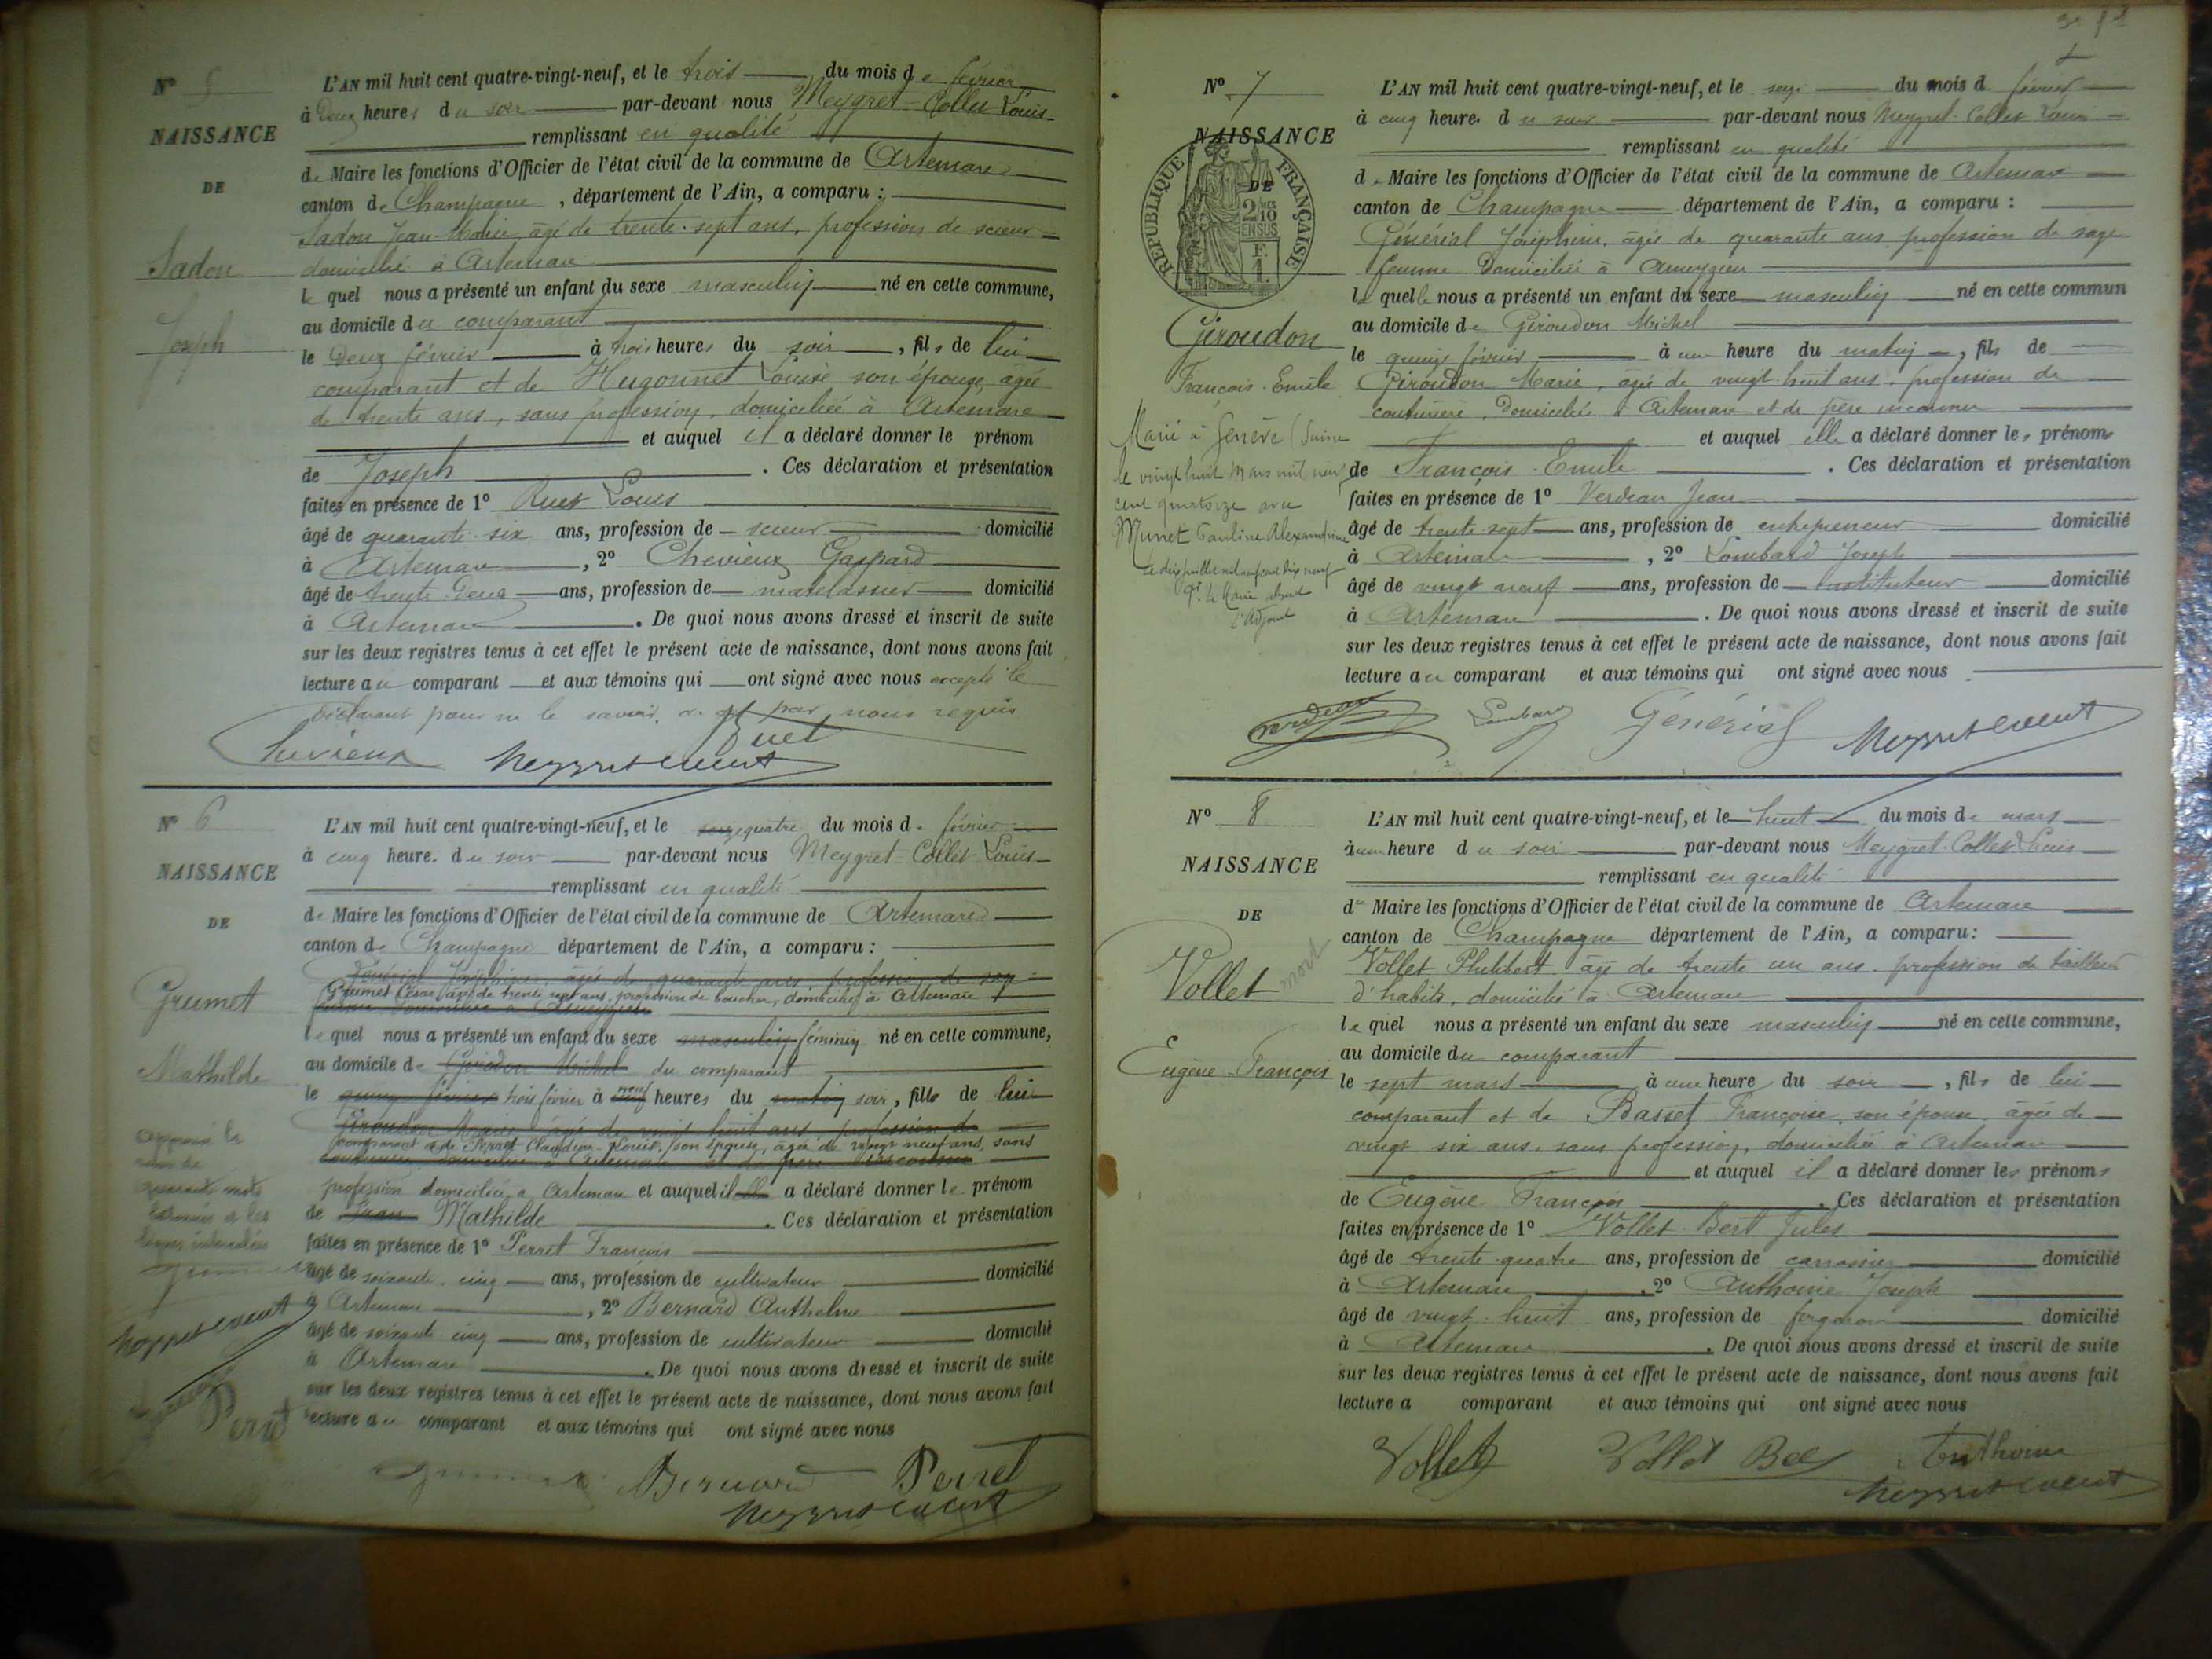 N° 5
NAISSANCE
DE
Sadon
Joseph
L'AN mil huit cent quatre-vingt-neuf, et le trois du mois de février
à Deux heures du soir par-devant nous Meygret-Collet Louis
remplissant en qualité
de Maire les fonctions d'Officier de l'état civil de la commune de Artemare
canton de Champagne, département de l'Ain, a comparu :
Sadon Jean-Marie, âgé de trente-sept ans, profession de scieur
domicilié à Artemare
le quel nous a présenté un enfant du sexe masculin né en cette commune,
au domicile du comparant
le Deux février à trois heures du soir, fils de lui
comparant et de Hugonnet Louise son épouse, âgée
de trente ans, sans profession, domiciliée à Artemare
et auquel il a déclaré donner le prénom
de Joseph. Ces déclaration et présentation
faites en présence de 1° Ruet Louis
âgé de quarante-six ans, profession de scieur domicilié
à Artemare, 2° Chevieux Gaspard
âgé de trente-Deux ans, profession de matelassier domicilié
à Artemare. De quoi nous avons dressé et inscrit de suite
sur les deux registres tenus à cet effet le présent acte de naissance, dont nous avons fait
lecture au comparant et aux témoins qui ont signé avec nous excepté le
déclarant pour ne le savoir, de ce par nous requis
Chevieux Ruet
N° 6
NAISSANCE
DE
Grumet
Mathilde
L'AN mil huit cent quatre-vingt-neuf, et le seize quatre du mois de février
à cinq heure. du soir par-devant nous Meygret-Collet Louis
remplissant en qualité
de Maire les fonctions d'Officier de l'état civil de la commune de Artemare
canton de Champagne département de l'Ain, a comparu :
Générial Joséphine, âgée de quarante ans profession de sage
Grumet César, âgé de trente sept ans, profession de boucher, domicilié à Artemare
femme domiciliée à Ameyzieu
le quel nous a présenté un enfant du sexe masculin féminin né en cette commune,
au domicile de Giroudon Michel du comparant
le quinze février trois février à neuf heures du matin soir, fille de lui
Giroudon Marie, âgée de vingt huit ans profession de
comparant et de Perret Claudine-Louise, son épouse, âgée de vingt neuf ans, sans
couturière domiciliée à Artemare et de père inconnu
profession domiciliée à Artemare et auquel il elle a déclaré donner le prénom
de Jean Mathilde. Ces déclaration et présentation
faites en présence de 1° Perret François
âgé de soixante-cinq ans, profession de cultivateur domicilié
à Artemare, 2° Bernard Anthelme
âgé de soixante cinq ans, profession de cultivateur domicilié
à Artemare. De quoi nous avons dressé et inscrit de suite
sur les deux registres tenus à cet effet le présent acte de naissance, dont nous avons fait
lecture au comparant et aux témoins qui ont signé avec nous
Perret
Bernard Perret
N° 7
NAISSANCE
DE
RÉPUBLIQUE FRANÇAISE
2/10 EN SUS
F. 1.
Giroudon
François-Emile
Marié à Genève (Suisse
le vingt huit Mars mil neuf
cent quatorze avec
Munet Pauline Alexandrine
Le dix juillet mil neuf cent dix neuf
Pr. le Maire absent
L'Adjoint
L'AN mil huit cent quatre-vingt-neuf, et le seize du mois d février
à cinq heure. du soir par-devant nous Meygret-Collet Louis
remplissant en qualité
de Maire les fonctions d'Officier de l'état civil de la commune de Artemare
canton de Champagne département de l'Ain, a comparu :
Générial Joséphine, âgée de quarante ans profession de sage
femme Domiciliée à Ameyzieu
la quelle nous a présenté un enfant du sexe masculin né en cette commun
au domicile de Giroudon Michel
le quinze février à une heure du matin, fils de
Giroudon Marie, âgée de vingt-huit ans, profession de
couturière, Domiciliée à Artemare et de père inconnu
et auquel elle a déclaré donner les prénoms
de François-Emile. Ces déclaration et présentation
faites en présence de 1° Verdeau Jean
âgé de trente-sept ans, profession de entrepreneur domicilié
à Artemare, 2° Lombard Joseph
âgé de vingt neuf ans, profession de instituteur domicilié
à Artemare. De quoi nous avons dressé et inscrit de suite
sur les deux registres tenus à cet effet le présent acte de naissance, dont nous avons fait
lecture au comparant et aux témoins qui ont signé avec nous
Lombard Générial
N° 8
NAISSANCE
DE
Vollet
mort
Eugène-François
L'AN mil huit cent quatre-vingt-neuf, et le huit du mois de mars
à une heure du soir par-devant nous Meygret-Collet Louis
remplissant en qualité
de Maire les fonctions d'Officier de l'état civil de la commune de Artemare
canton de Champagne département de l'Ain, a comparu :
Vollet Philibert âgé de trente un ans, profession de tailleur
d'habits, domicilié à Artemare
le quel nous a présenté un enfant du sexe masculin né en cette commune,
au domicile du comparant
le sept mars à une heure du soir, fils de lui
comparant et de Basset Françoise, son épouse, âgée de
vingt six ans, sans profession, domiciliée à Artemare
et auquel il a déclaré donner les prénoms
de Eugène François. Ces déclaration et présentation
faites en présence de 1° Vollet-Bert Jules
âgé de trente-quatre ans, profession de carrossier domicilié
à Artemare, 2° Anthoine Joseph
âgé de vingt-huit ans, profession de forgeron domicilié
à Artemare. De quoi nous avons dressé et inscrit de suite
sur les deux registres tenus à cet effet le présent acte de naissance, dont nous avons fait
lecture a comparant et aux témoins qui ont signé avec nous
Vollet Vollet Anthoine